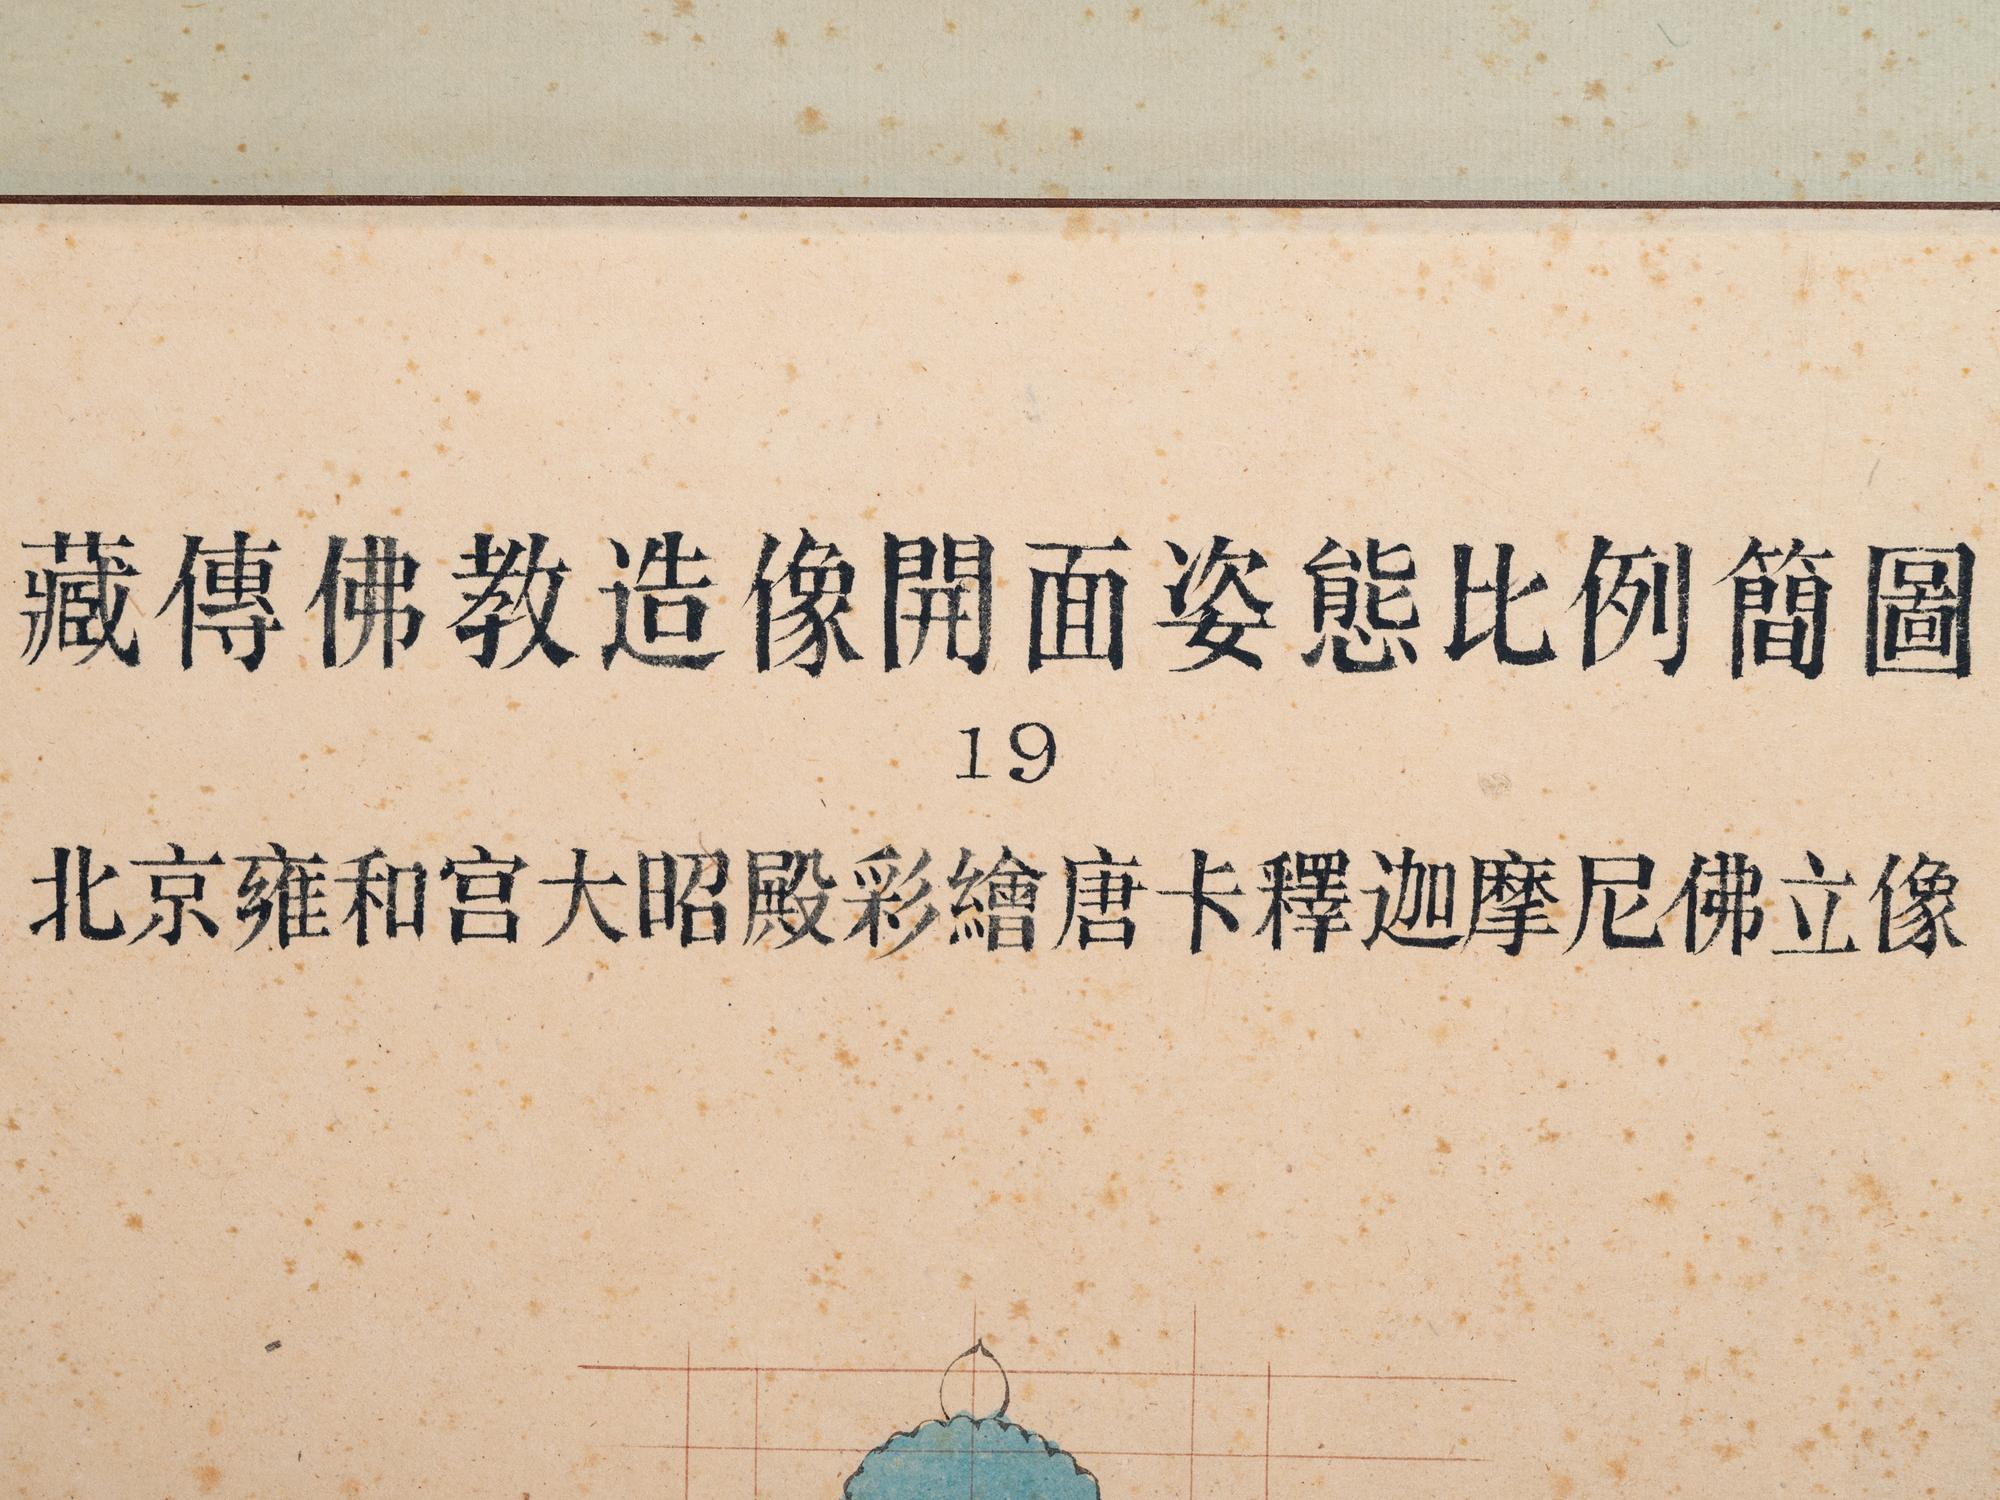 藏傳佛教造像開面姿態比例簡圖
19
北京雍和宫大昭殿彩繪唐卡釋迦摩尼佛立像